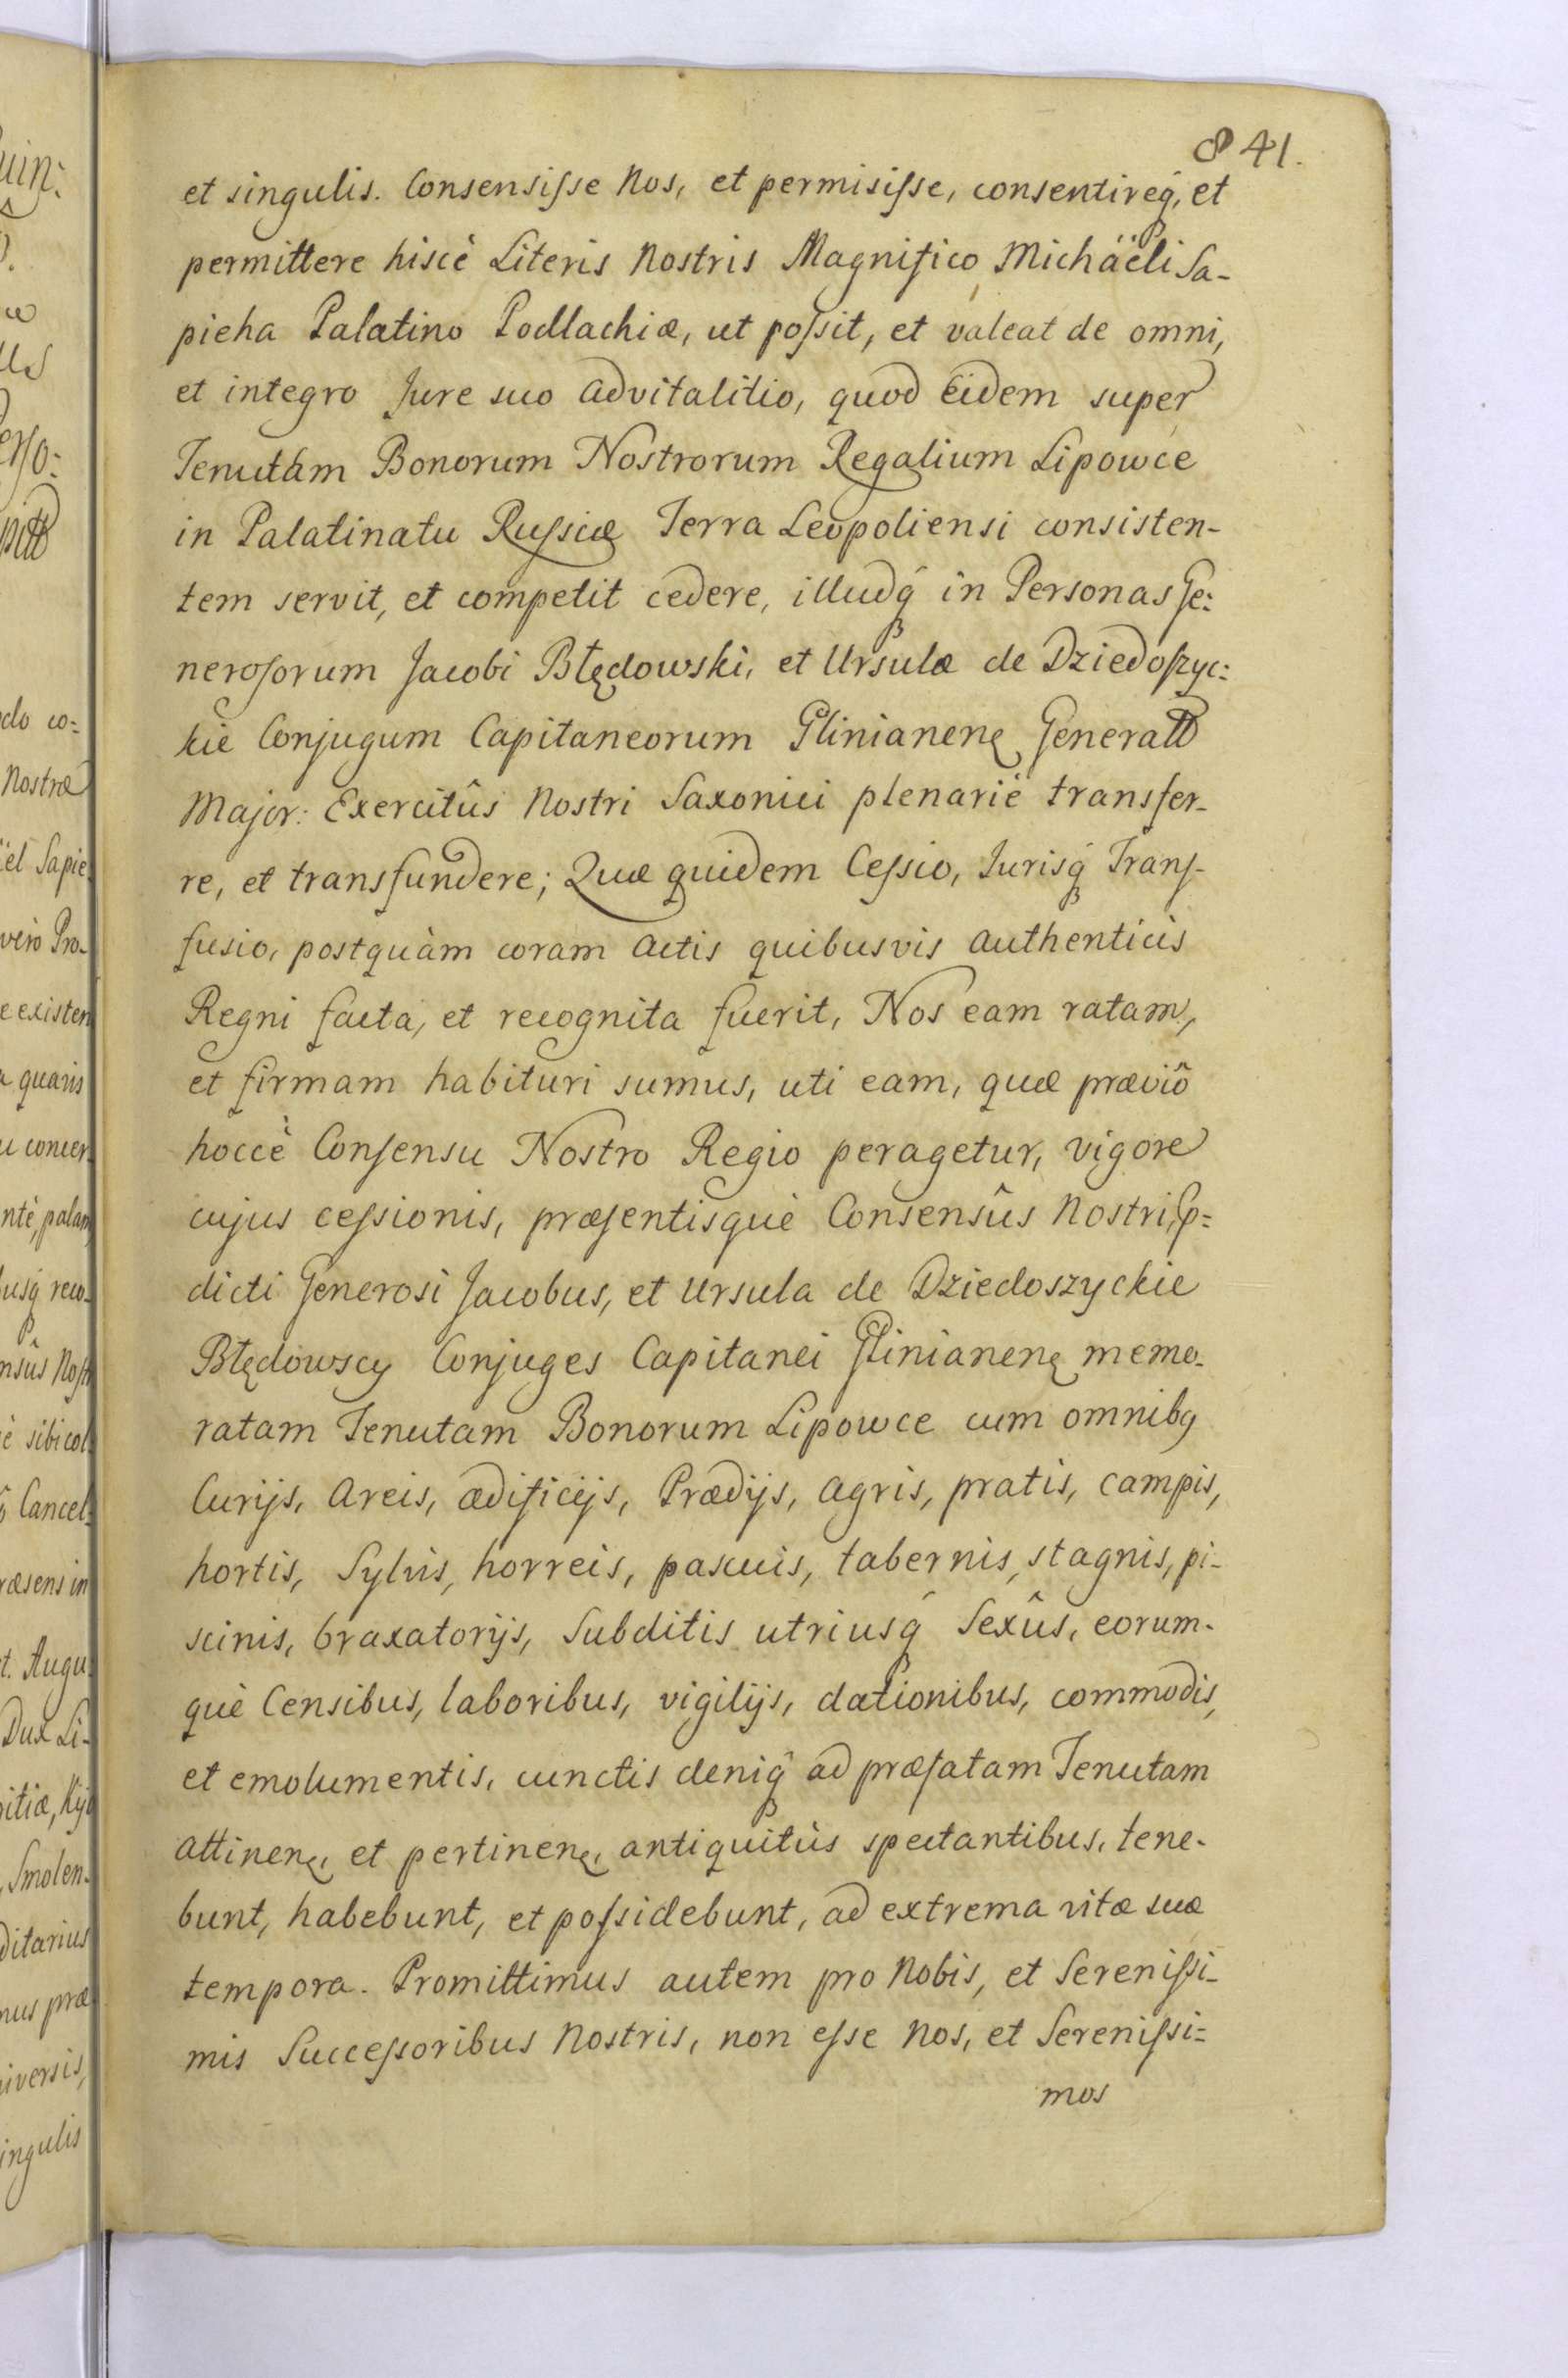 841.
et singulis. Consensiſse Nos, et permisiſse, consentireq́, et
permittere hiscè Literis Nostris Magnifico Michäëli Sa-
pieha Palatino Podlachiæ, ut poſsit, et valeat de omni,
et integro Jure suo advitalitio, quod Eidem super
Tenutam Bonorum Nostrorum Regalium Lipowce
in Palatinatu Ruſsiæ Terra Leopoliensi consisten-
tem servit, et competit cedere, illudq́ in Personas Ge:
neroſorum Jacobi Błędowski, et Ursulæ de Dziedoſzyc:
kie Conjugum Capitaneorum Glinianenę Generall
Major: Exercitûs Nostri Saxonici plenariè transfer-
re, et transfundere; Quæ quidem Ceſsio, Jurisq́ Tranſ-
fusio, postquàm coram Actis quibusvis authenticis
Regni facta, et recognita fuerit, Nos eam ratam,
et firmam habituri sumus, uti eam, quæ præviô
hoccè Conſensu Nostro Regio peragetur, vigore
cujus ceſsionis, præſentisquè Consensûs Nostri, p̱=
dicti Generosi Jacobus, et Ursula de Dziedoszyckie
Błędowscy Conjuges Capitanei Glinianenę memo-
ratam Tenutam Bonorum Lipowce cum omnibꝯ
Curijs, Areis, ædificijs, Prædijs, Agris, pratis, campis,
hortis, Sylvis, horreis, pascuis, tabernis, stagnis, pi-
scinis, braxatorijs, Subditis utriusq́ Sexûs, eorum-
què Censibus, laboribus, vigilijs, dationibus, commodis,
et emolumentis, cunctis deniq́ ad præfatam Tenutam
attinenę, et pertinenę, antiquitùs spectantibus, tene-
bunt, habebunt, et poſsidebunt, ad extrema vitæ suæ
tempora. Promittimus autem pro Nobis, et Sereniſsi-
mis Succeſsoribus Nostris, non eſse Nos, et Sereniſsi=
mos